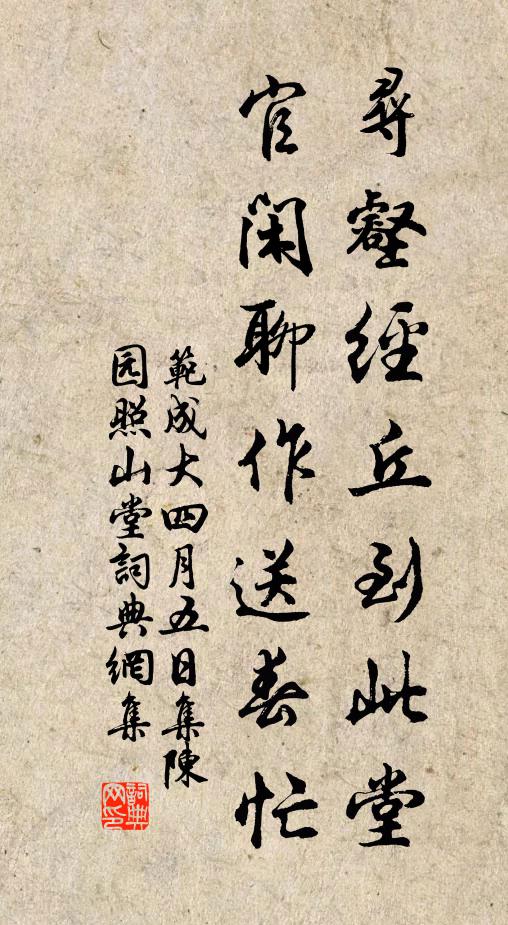 尋壑經丘到此堂
官閑聊作送春忙
範成大四月五日集陳
园照山堂詞典網集
詞典网印